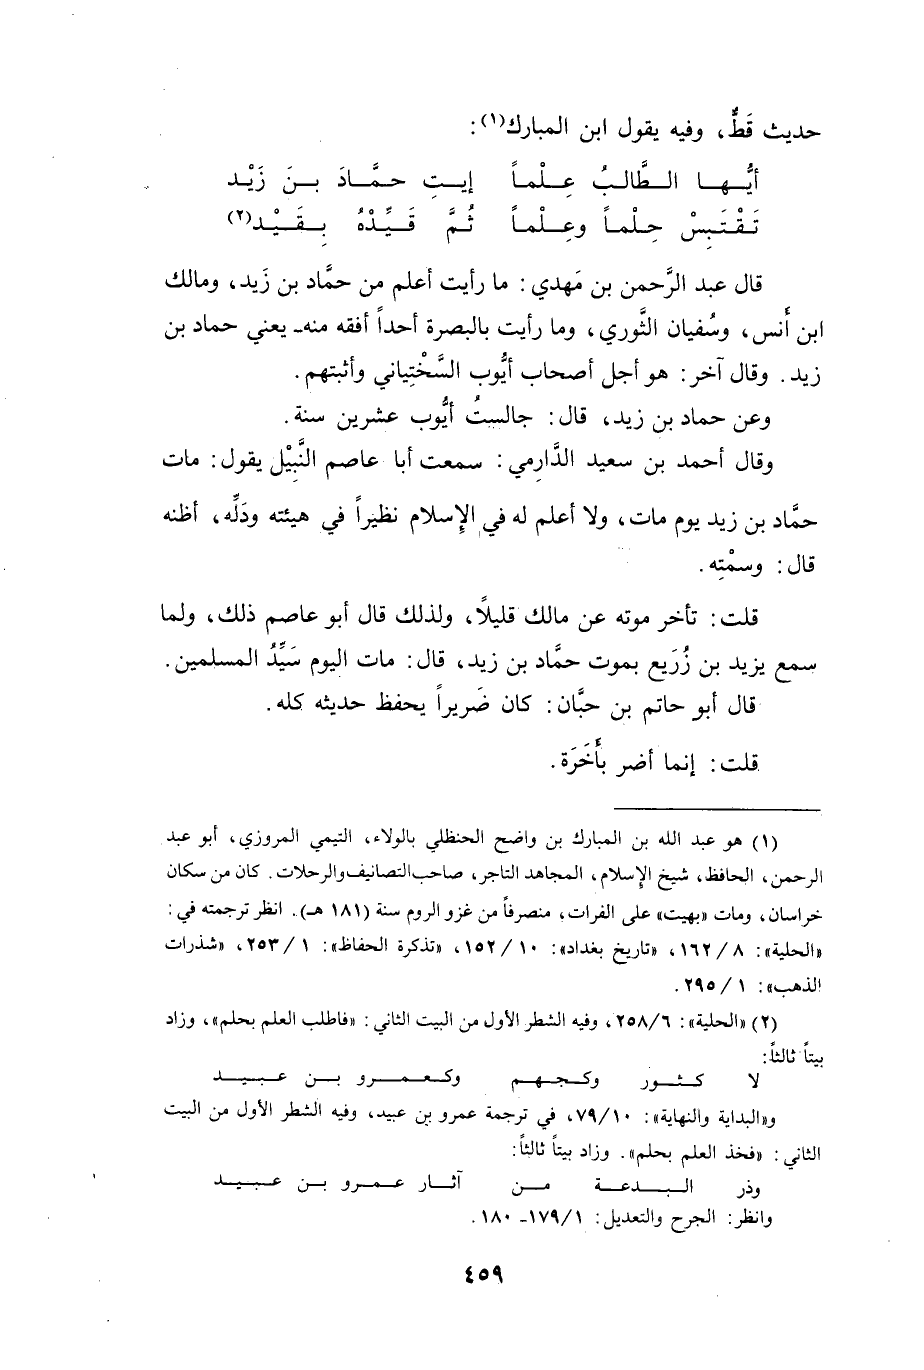 حديث قَطُّ، وفيه يقول ابن المبارك(١):
أيُّهـا الـطَّالبُ عِلْماً إيتِ حمَّادَ بـنَ زَيْد
تَقْتَبِسْ حِلْماً وعِلْماً ثُمَّ قَيِّدْهُ بِقَيْد(٢)
قال عبد الرَّحمن بن مَهدي: ما رأيت أعلم من حمَّاد بن زَيد، ومالك
ابن أنس، وسُفيان الثَّوري، وما رأيت بالبصرة أحداً أفقه منه- يعني حماد بن
زيد. وقال آخر: هو أجل أصحاب أيُّوب السَّخْتِياني وأثبتهم.
وعن حماد بن زيد، قال: جالستُ أيُّوب عشرين سنة.
وقال أحمد بن سعيد الدَّارمي: سمعت أبا عاصم النَّبِيْل يقول: مات
حمَّاد بن زيد يوم مات، ولا أعلم له في الإسلام نظيراً في هيئته ودَلِّه، أظنه
قال: وسمْتِه.
قلت: تأخر موته عن مالك قليلاً، ولذلك قال أبو عاصم ذلك، ولما
سمع يزيد بن زُرَيع بموت حمَّاد بن زيد، قال: مات اليوم سَيِّدُ المسلمين.
قال أبو حاتم بن حبَّان: كان ضَريراً يحفظ حديثه كله.
قلت: إنما أضر بأَخَرَة.
(١) هو عبد الله بن المبارك بن واضح الحنظلي بالولاء، التيمي المروزي، أبو عبد
الرحمن، الحافظ، شيخ الإسلام، المجاهد التاجر، صاحب التصانيف والرحلات. كان من سكان
خراسان، ومات «بهيت» على الفرات، منصرفاً من غزو الروم سنة (١٨١ هـ). انظر ترجمته في:
«الحلية»: ٨ / ١٦٢، «تاريخ بغداد»: ١٠ / ١٥٢، «تذكرة الحفاظ»: ١ / ٢٥٣، «شذرات
الذهب»: ١ / ٢٩٥.
(٢) «الحلية»: ٦/ ٢٥٨، وفيه الشطر الأول من البيت الثاني: «فاطلب العلم بحلم»، وزاد
بيتاً ثالثاً:
لا كثور وكجهم وكعمرو بن عبيد
و«البداية والنهاية»: ١٠ /٧٩، في ترجمة عمرو بن عبيد، وفيه الشطر الأول من البيت
الثاني: «فخذ العلم بحلم». وزاد بيتاً ثالثاً:
وذر البدعة من آثار عمرو بن عبيد
وانظر: الجرح والتعديل: ١/ ١٧٩- ١٨٠.
٤٥٩